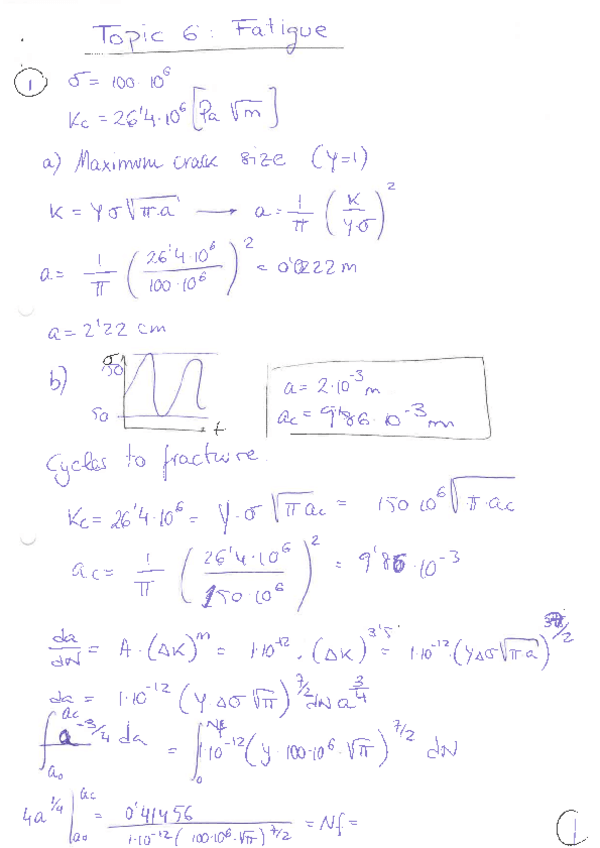 Topic 6: Fatigue
1 σ = 100·10⁶
Kc = 26'4·10⁶ [Pa √m]
a) Maximum crack size (Y=1)
K = Yσ√π·a → a = 1/π (K/Y·σ)²
a = 1/π (26'4·10⁶/100·10⁶)² = 0'0222 m
a = 2'22 cm
b) σ 150 50 t
a = 2·10⁻³ m
ac = 9'86·10⁻³ m
Cycles to fracture
Kc = 26'4·10⁶ = Y·σ √πac = 150·10⁶ √π·ac
ac = 1/π (26'4·10⁶/150·10⁶)² = 9'86·10⁻³
da/dN = A·(ΔK)ᵐ = 1·10⁻¹²·(ΔK)³'⁵ = 1·10⁻¹²·(YΔσ√πa)^7/2
da = 1·10⁻¹² (YΔσ√π)^7/2 dN a^3/4
∫a₀^ac a^-3/4 da = ∫0^Nf 10⁻¹² (Y·100·10⁶·√π)^7/2 dN
4a^1/4 |a₀^ac = 0'41456/1·10⁻¹² (100·10⁶·√π)^7/2 = Nf =
1